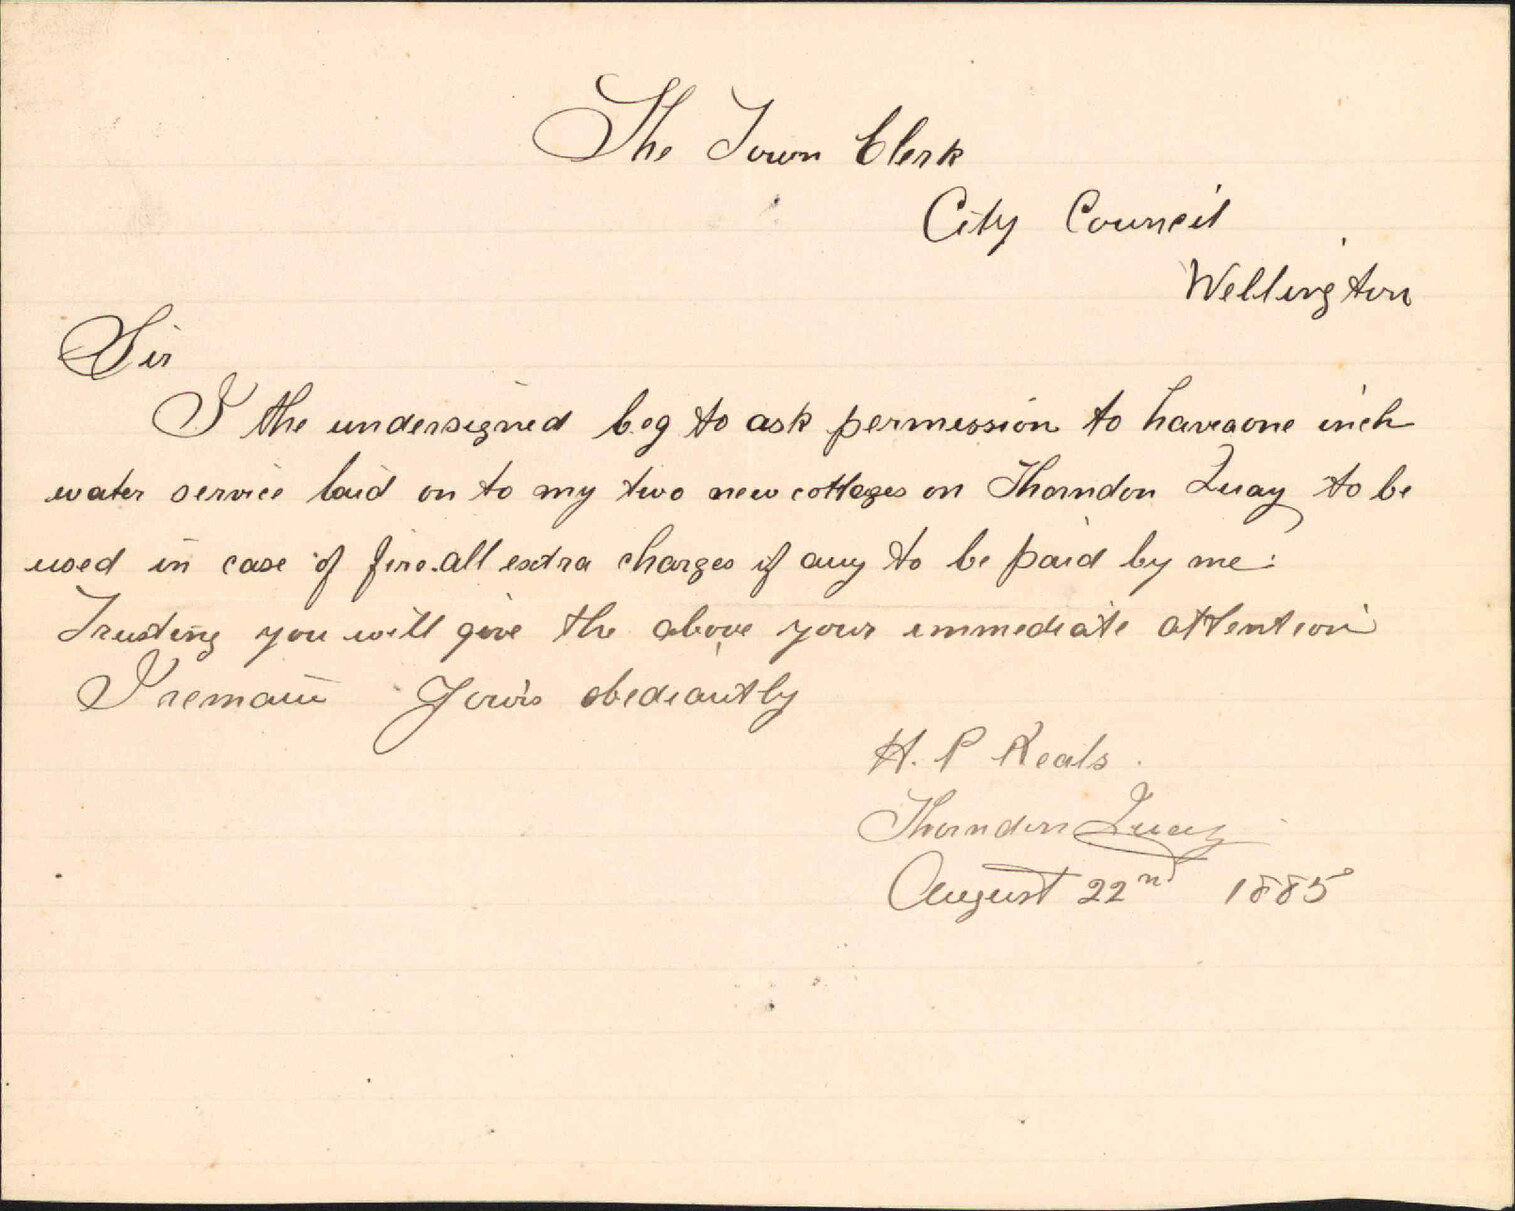 The Town Clerk
City Council
Wellington
Sir
I the undersigned beg to ask permission to have a one inch
water service laid on to my two new cottages on Thorndon Quay to be
used in case of fire. all extra charges if any to be paid by me:
Trusting you will give the above your immediate attention
I remain Yours obediantly
H. P Keals.
Thorndon Quay
August 22nd 1885